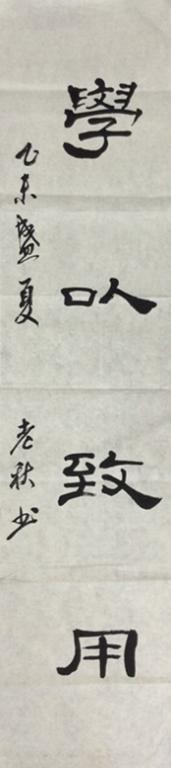 學以致用
乙未盛夏
老秋书